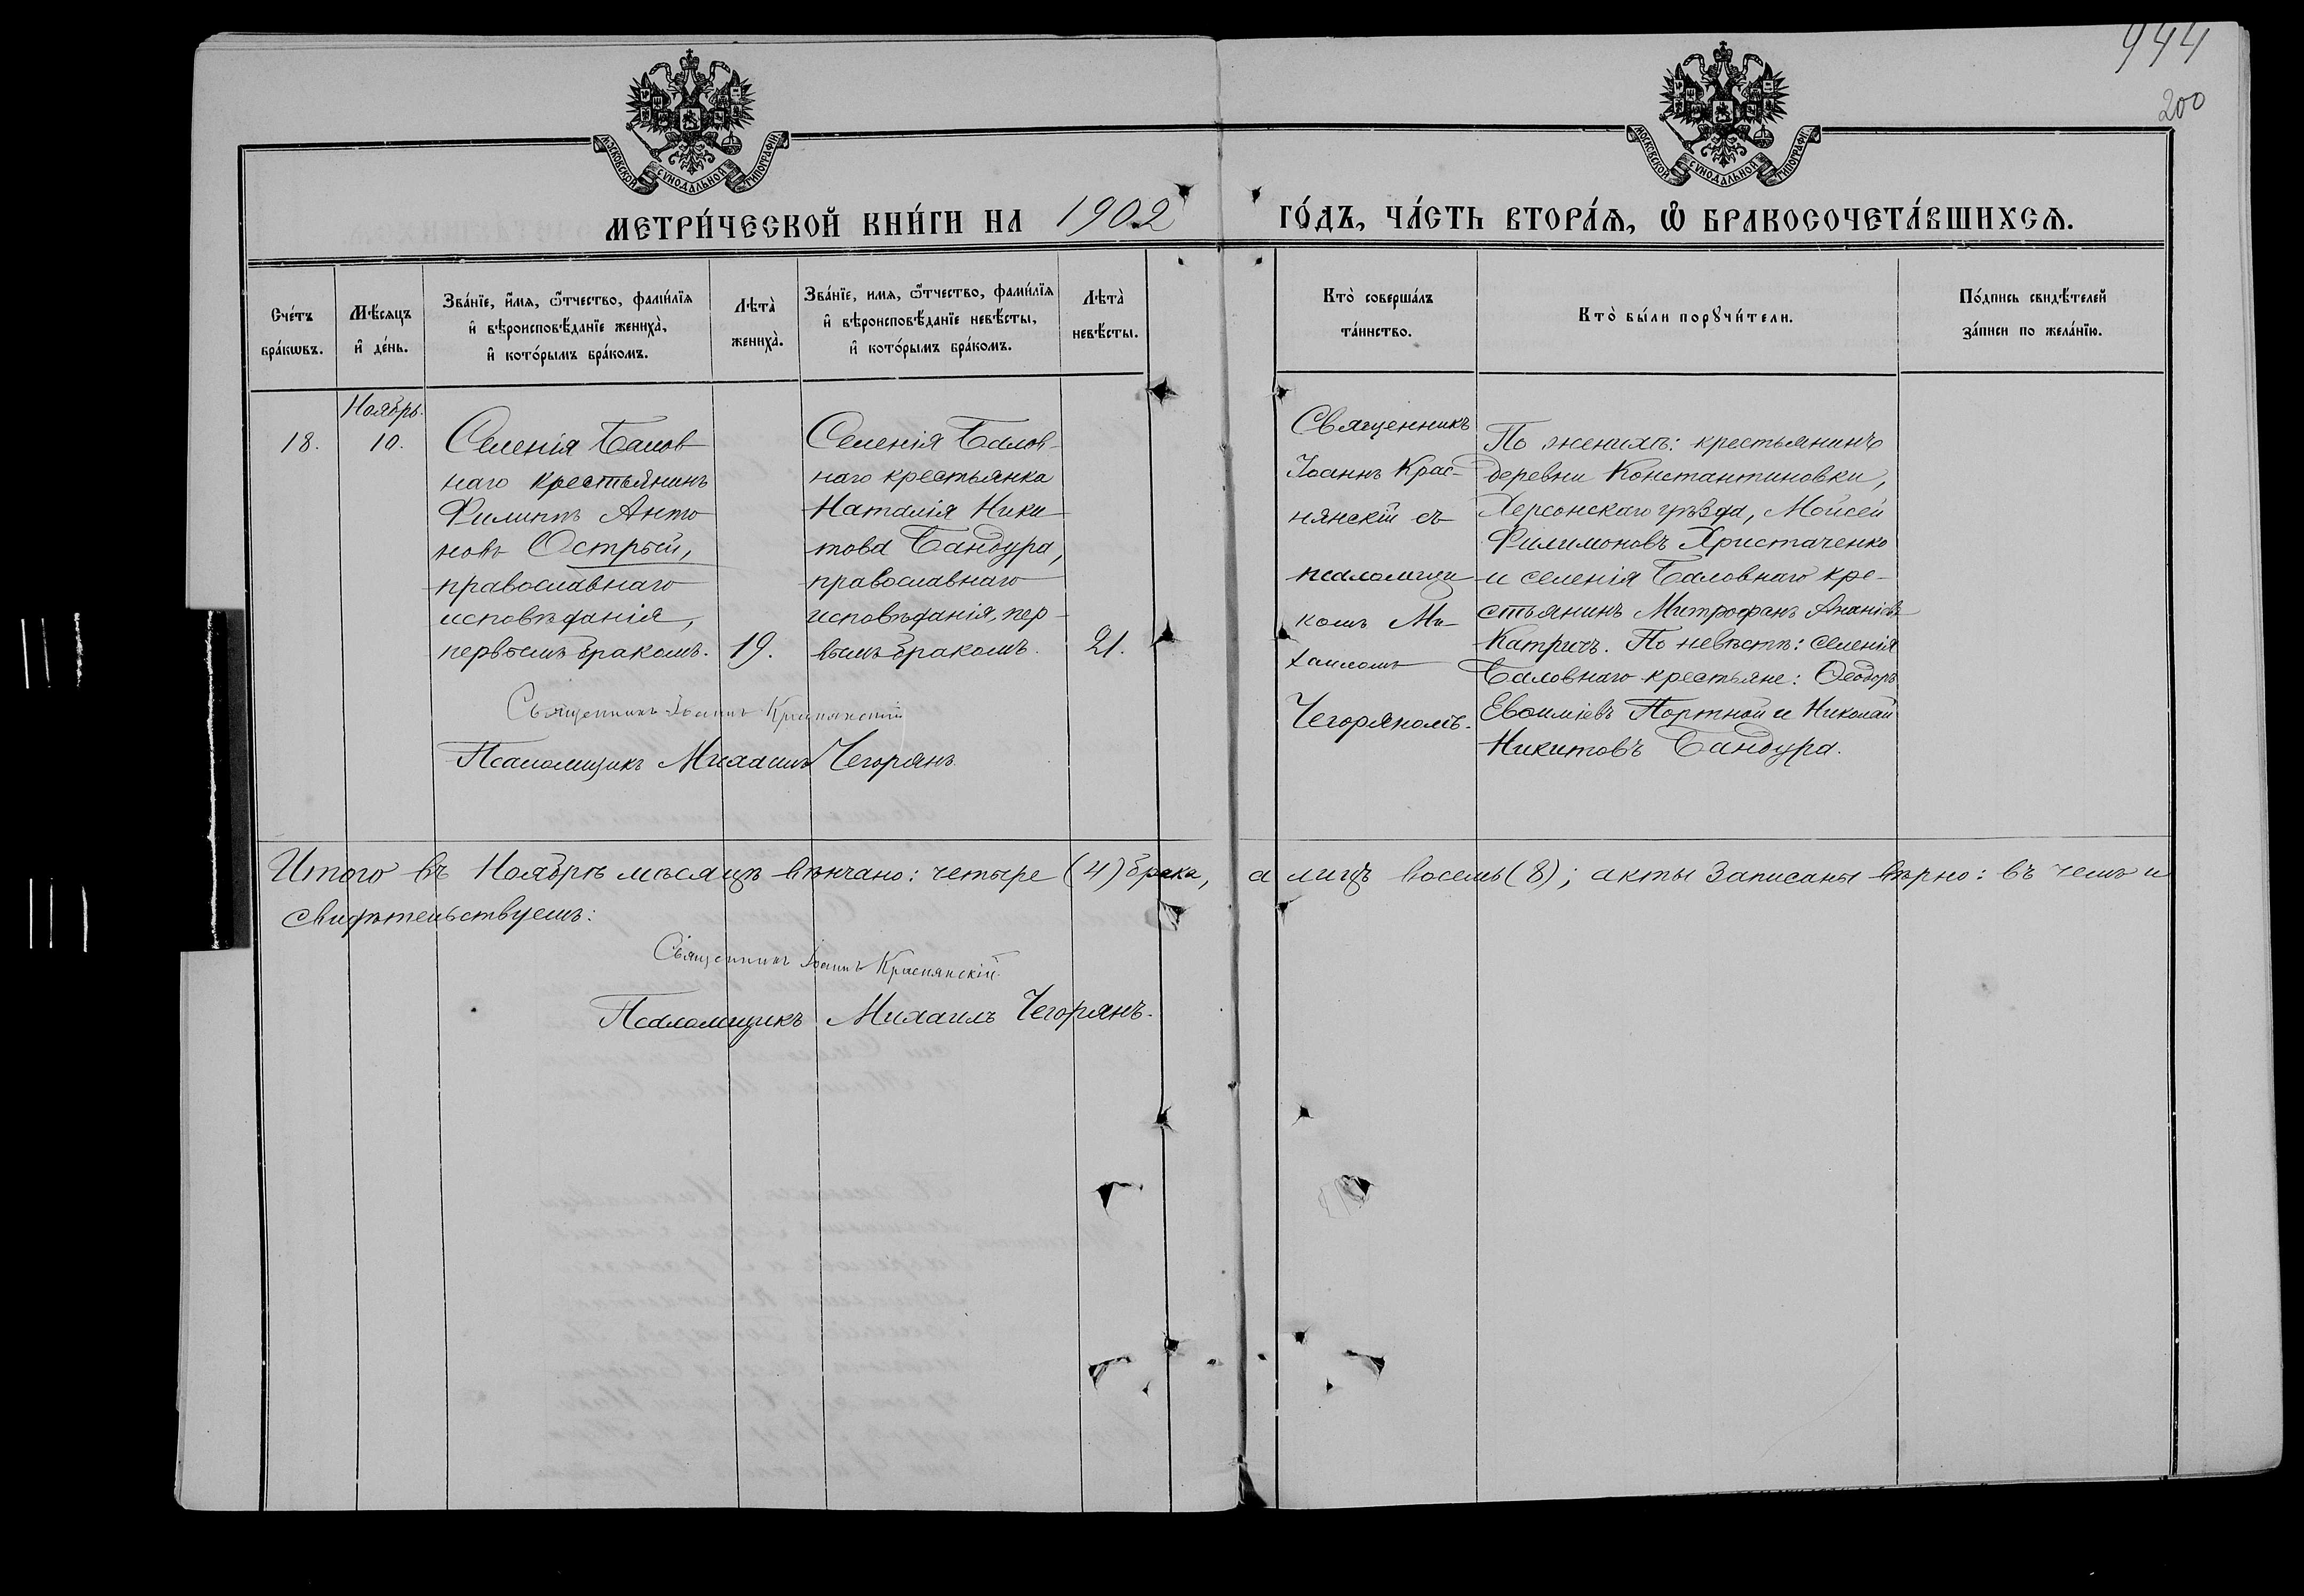 944
200
МОСКОВСКОЙ СѴНОДАЛЬНОЙ ТИПОГРАФІИ.
МОСКОВСКОЙ СѴНОДАЛЬНОЙ ТИПОГРАФІИ.
МЕТРИ́ЧЕСКОЙ КНИ́ГИ НА 1902 ГО́ДЪ, ЧА́СТЬ ВТОРА́Ѧ, Ѽ БРАКОСОЧЕТА́ВШИХСѦ.
Сче́тъ
бра́кѡвъ.
Мѣ́сѧцъ
и҆ де́нь.
Зва́нїе, и҆́мѧ, ѻ҆́тчество, фами́лїѧ
и҆ вѣроисповѣ́данїе жениха̀,
и҆ кото́рымъ бра́комъ.
Лѣта̀
жениха̀.
Зва́нїе, имѧ, ѻ҆́тчество, фами́лїѧ
и҆ вѣроисповѣ́данїе невѣ́сты,
и҆ кото́рымъ бра́комъ.
Лѣта̀
невѣ́сты.
Кто̀ соверша́лъ
та́инство.
Кто̀ бы́ли порꙋчи́тели.
По́дпись свидѣ́телей
за́писи по жела́нїю.
Ноябрь.
18.
10.
Селенія Балов
наго крестьянинъ
Филиппъ Анто
новъ Острый,
православнаго
исповѣданія,
первымъ бракомъ.
19.
Селенія Балов-
наго крестьянка
Наталія Ники
това Бандура,
православнаго
исповѣданія, пер-
вымъ бракомъ.
21.
Священникъ
Іоаннъ Крас-
нянскій съ
псаломщи
комъ Ми-
хаиломъ
Чегоряномъ.
По женихѣ: крестьянинъ
деревни Константиновки,
Херсонскаго уѣзда, Мойсей
Филимоновъ Христаченко
и селенія Баловнаго кре-
стьянинъ Митрофанъ Ананіевъ
Катричъ. По невѣстѣ: селенія
Баловнаго крестьяне: Ѳеодоръ
Евѳиміевъ Портной и Николай
Никитовъ Бандура.
Священникъ Іоаннъ Краснянскій
Псаломщикъ Михаилъ Чегорянъ
Итого въ Ноябрѣ мѣсяцѣ вѣнчано: четыре (4) брака, а лицъ восемь (8); акты записаны вѣрно: въ чемъ и
свидѣтельствуемъ:
Священникъ Іоаннъ Краснянскій.
Псаломщикъ Михаилъ Чегорянъ.